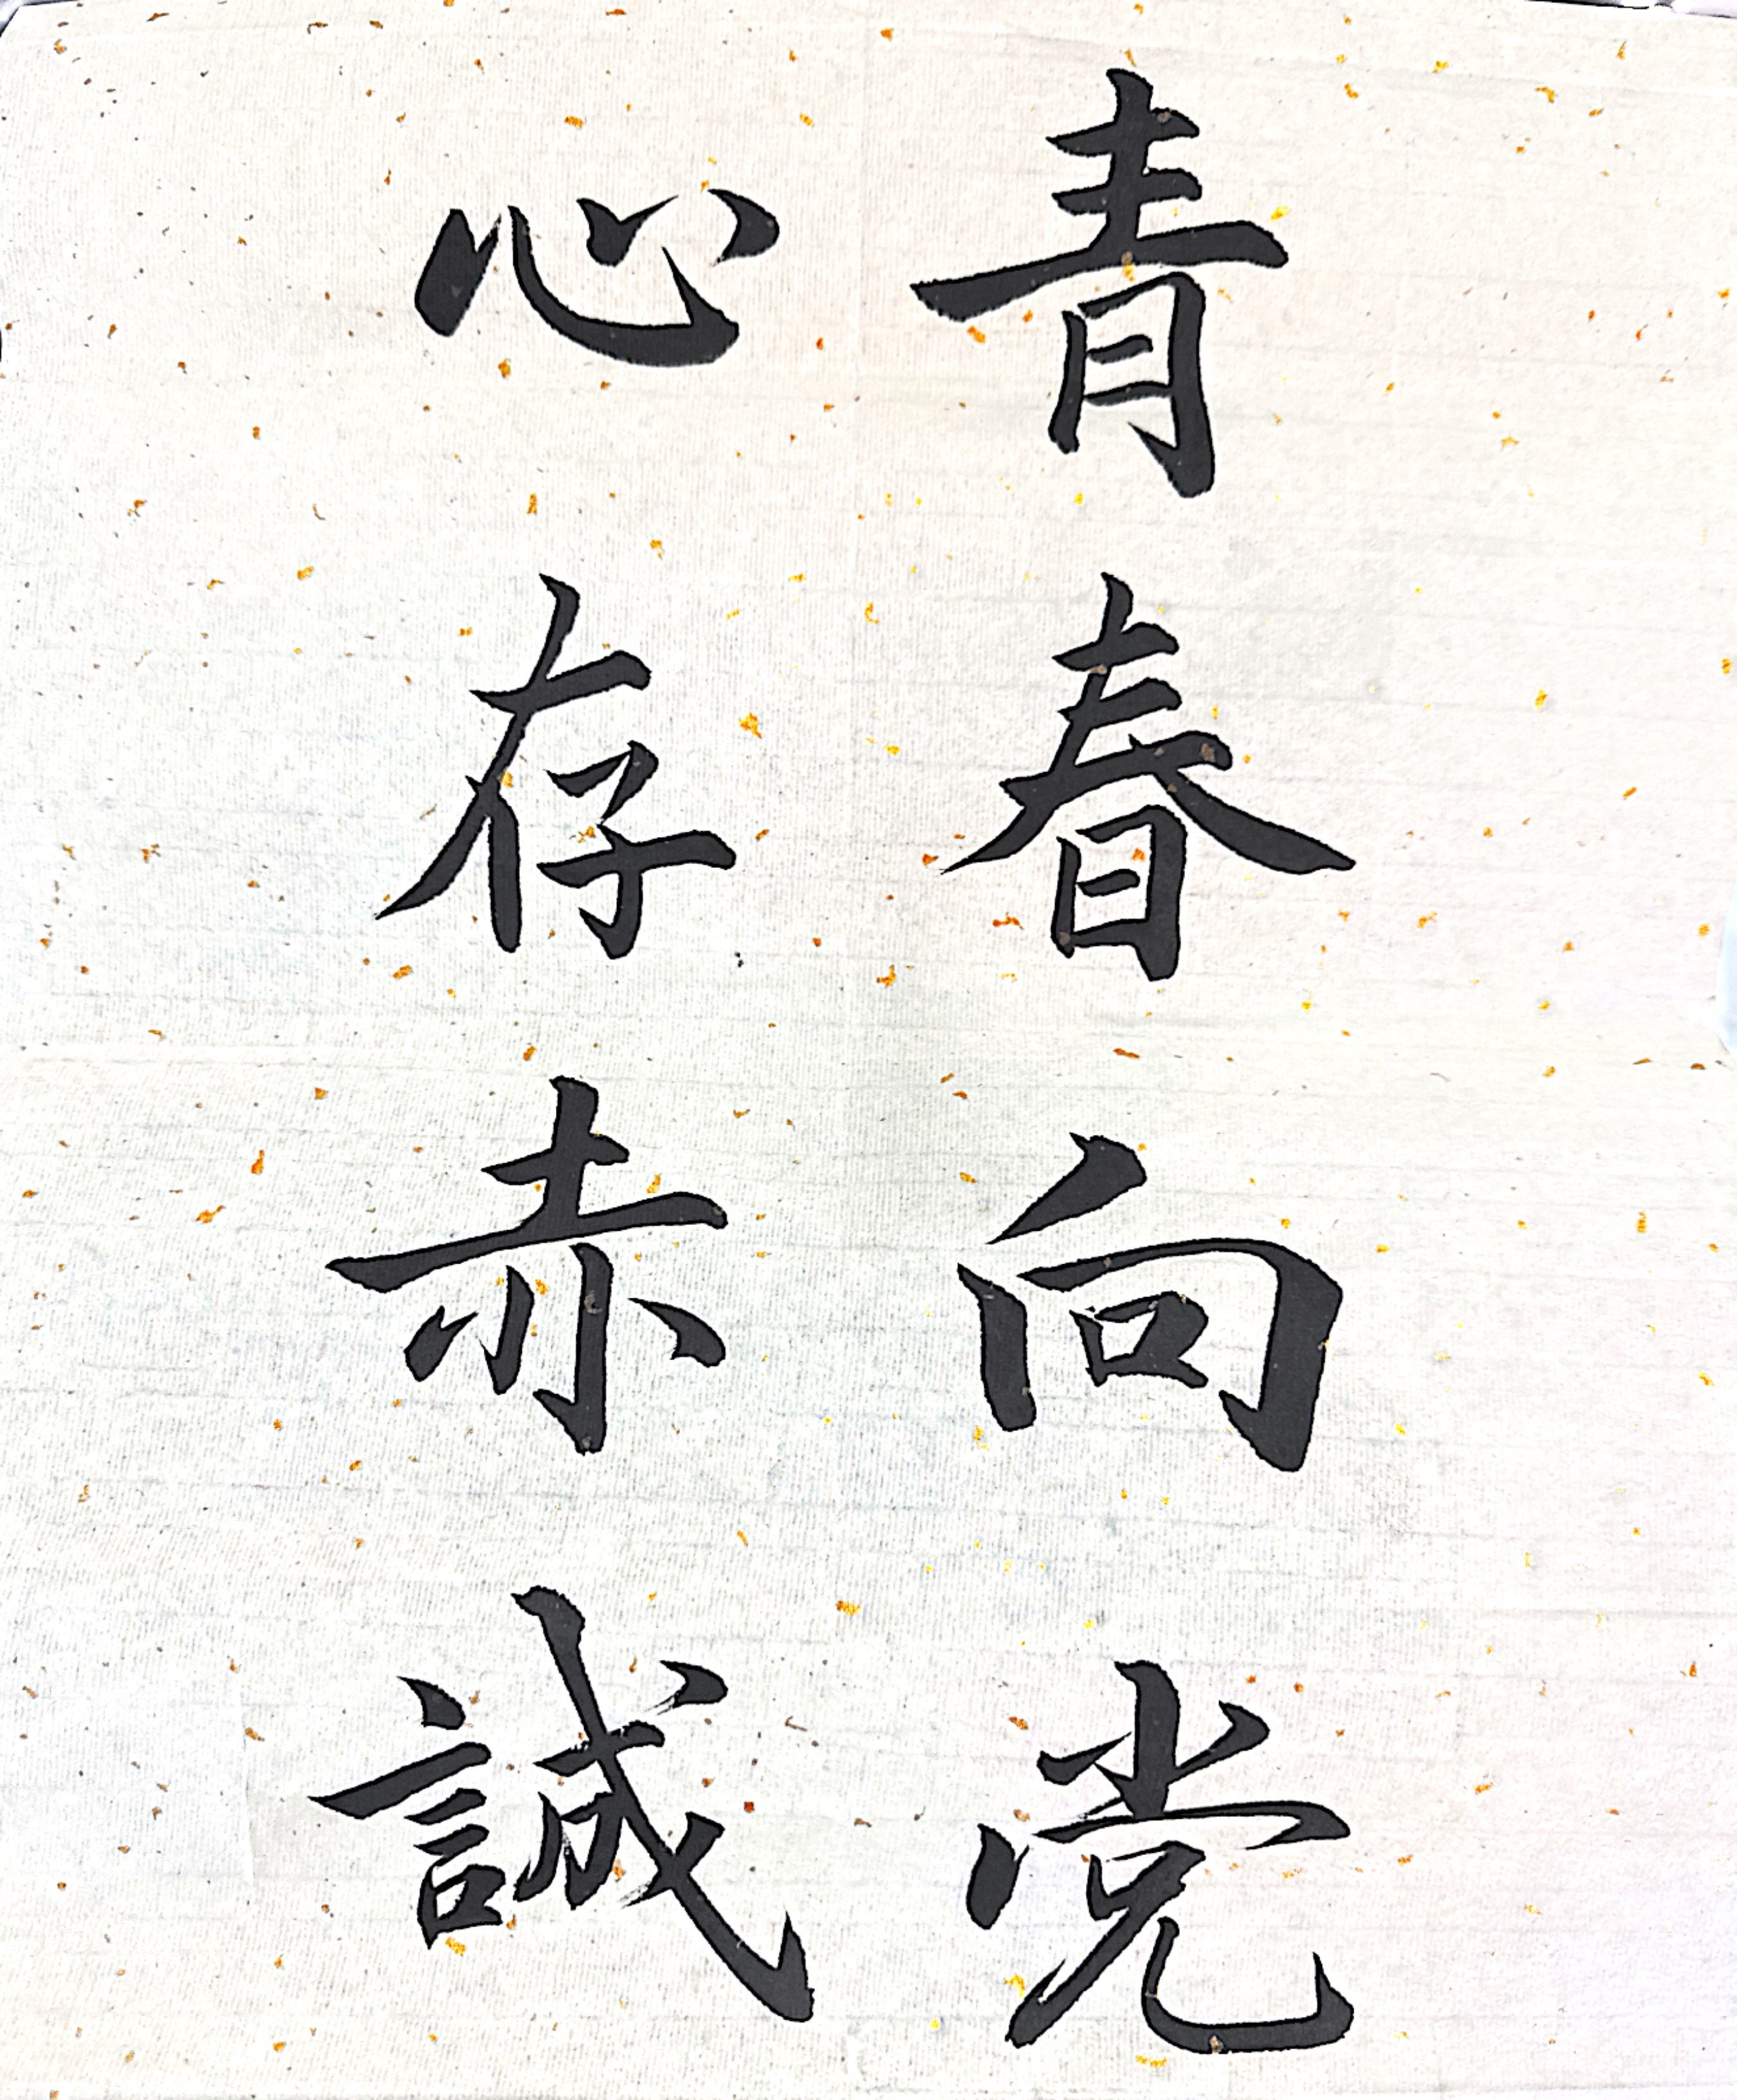 青春向党
心存赤誠